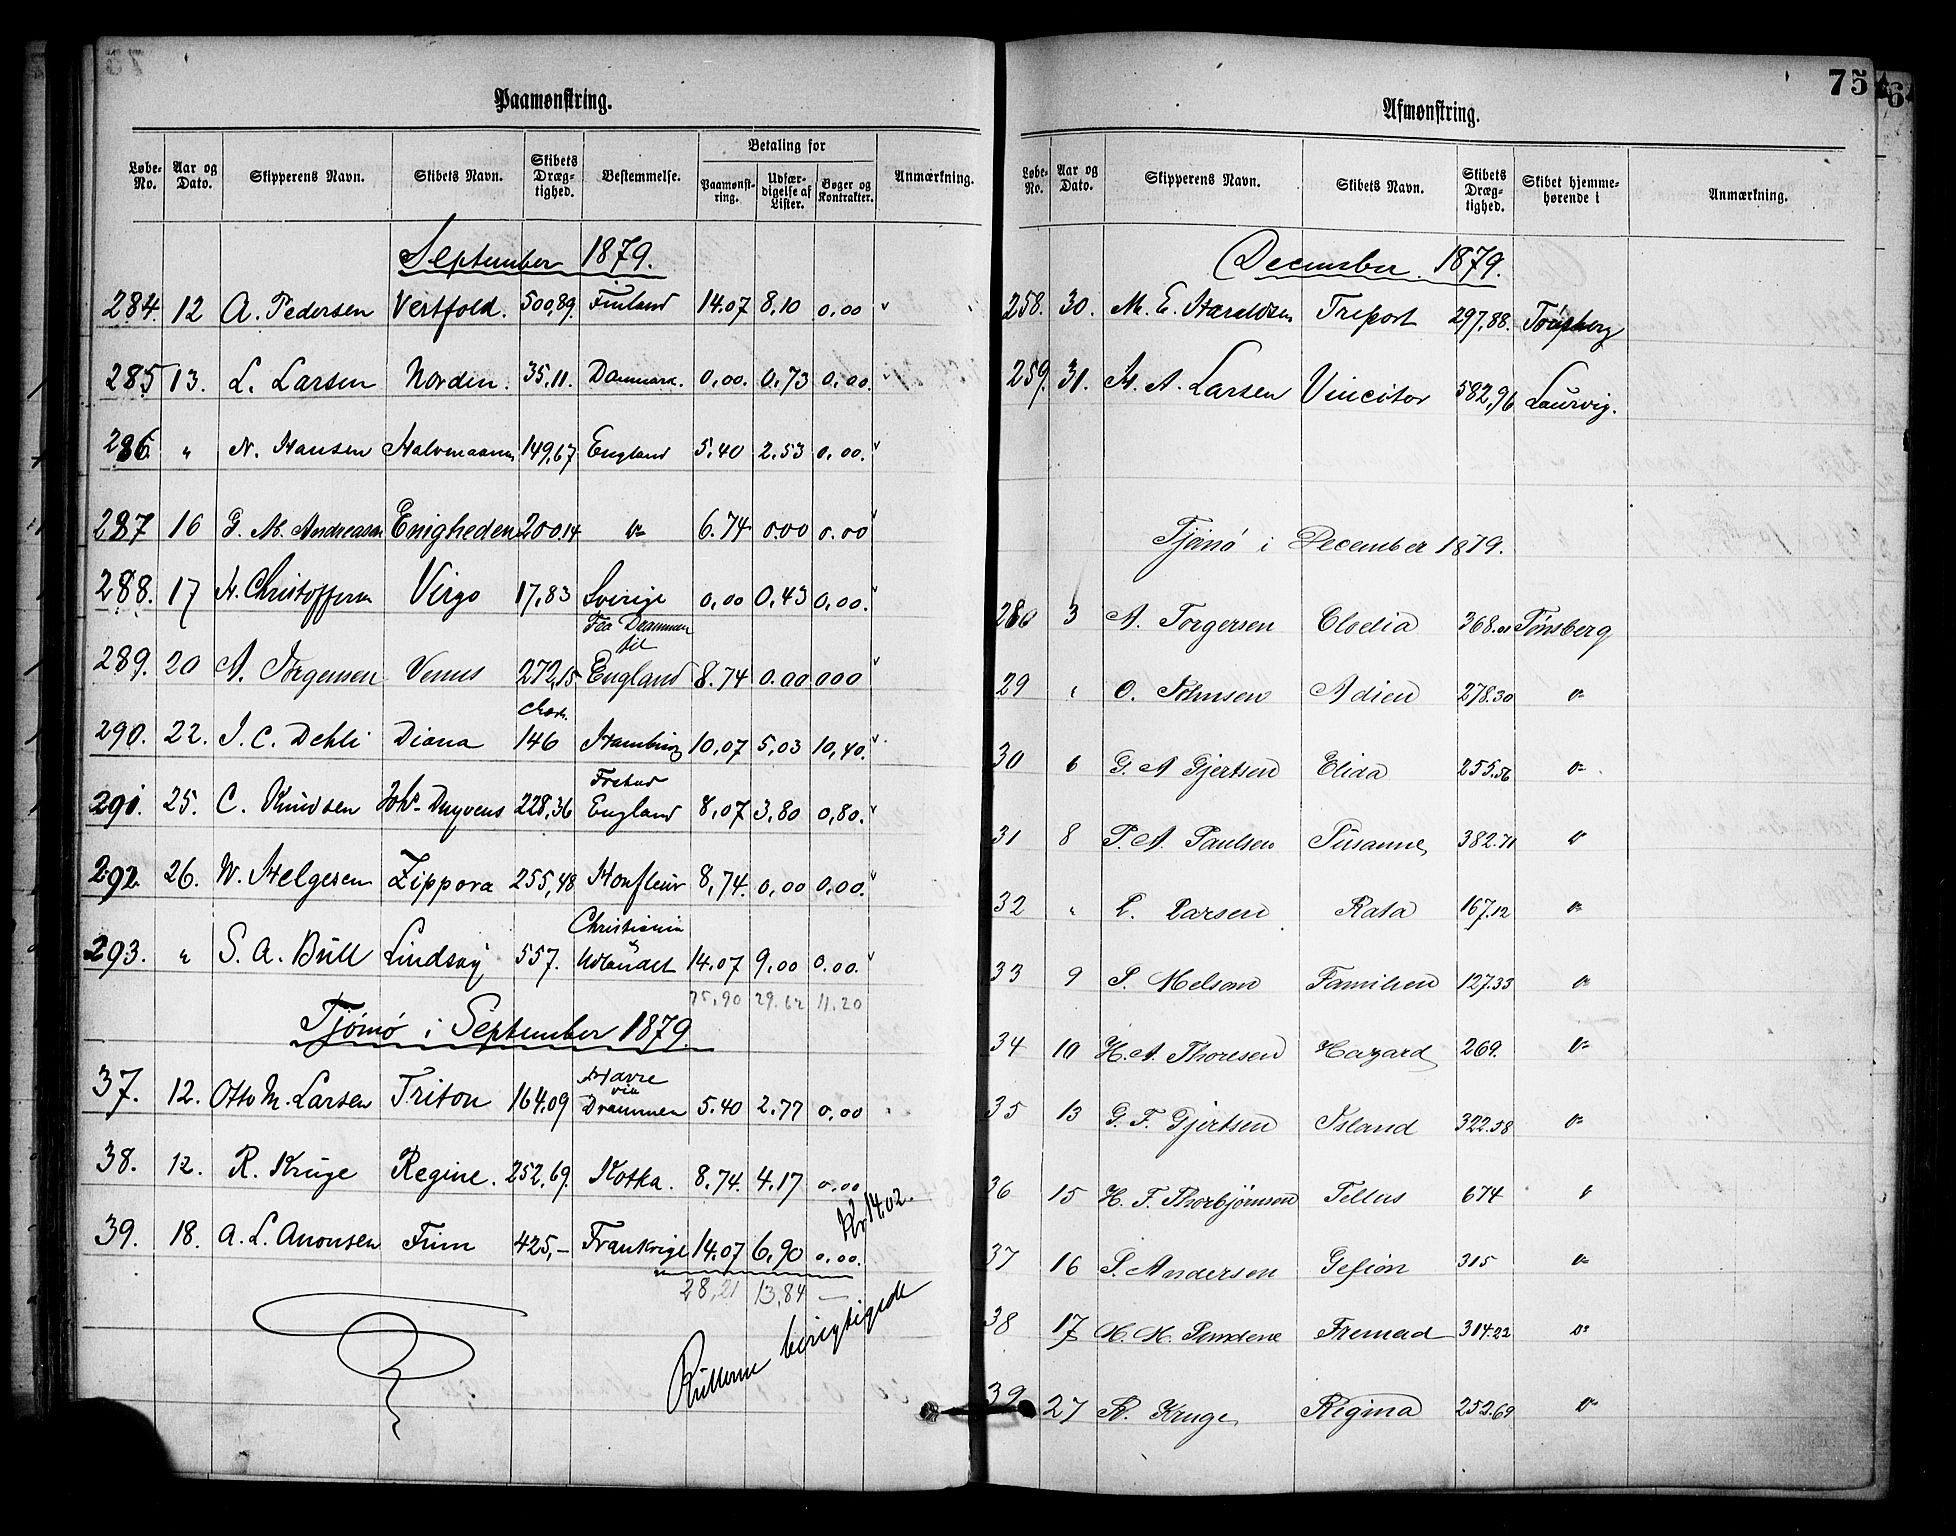 Paamønstring.
Løbe-No. Aar og Dato. Skipperens Navn. Skibets Navn. Skibets Dræg-tighed. Bestemmelse. Betaling for Paamønst-ring. Udfær-digelse af Lister. Bøger og Kontrakter. Anmærkning.
September 1879.
284. 12 A. Pedersen Vestfold. 500,89. Finland 14.07 8,10 0,00 v
285 13. L. Larsen Norden. 35,11. Danmark. 0,00. 0,73 0,00. v
286. " N. Hansen Halvmaanen 149,67 England 5,40 2,53 0,00. v
287 16 G. M. Andreasen Enigheden 200.14 do 6.74 0.00 0.00 v
288. 17 H. Christoffersen Virgo 17,83 Sverige 0,00 0,43 0,00. v
Fra Drammen
til
289. 20 A. Jørgensen Venus 272,15 England 8.74 0.00 000 v
290. 22. J. C. Dehli Diana 146 Hamburg 10,07 5,03 10,40. v
Frstad
291. 25. C. Knudsen Johs Duyvens 228,36 England 8,07 3,80 0,80. v
292. 26. W. Helgesen Zippora 255,48 Honfleur 8,74. 0,00 0,00. v
Christiania
293. " S. A. Bull Lindsay 557. Udlandet 14.07 9,00 0.00. v
75,90 29.62 11.20
Tjømø i September 1879.
Havre
via
37. 12. Otto M. Larsen Triton 164.09 Drammen 5.40 2.77 0,00
38. 12. R. Kruge Regine. 252,69. Kotka. 8.74. 4.17 0,00
Kr 14.02.
39. 18. A. L. Anonsen Finn 425,- Frankrige 14.07 6,90 0,00.
28,21 13,84 —
berigtigede
75
Afmønstring.
Løbe-No. Aar og Dato. Skipperens Navn. Skibets Navn. Skibets Dræg-tighed. Skibet hjemme-hørende i Anmærkning.
December. 1879.
258. 30. M. E. Haraldsen Treport 297,88. Tønsberg
259. 31. H. A. Larsen Vincitor 582,96 Laurvig.
Tjømø i December 1879.
280 3 A. Torgersen Clodia 368.01 Tønsberg
29 " O. Johnsen Adien 278.30 do
30 6 G. A Gjertsen Elida 255.56 do
31 8 P. A. Paulsen Susanne 382.71 do
32 " L. Larsen Rata 167.12 do
33 9 S. Melsom Familien 127.33 do
34 10 H. A. Thoresen Hazard 269. do
35 13 G. F. Gjertsen Island 322.58 do
36 15 H. F. Thorbjørnsen Tellus 674 do
37 16 S. Andersen Gefion 315 do
38 17 H. M. Sundene Fremad 314.22 do
39 27 R. Kruge Regina 252.69 do